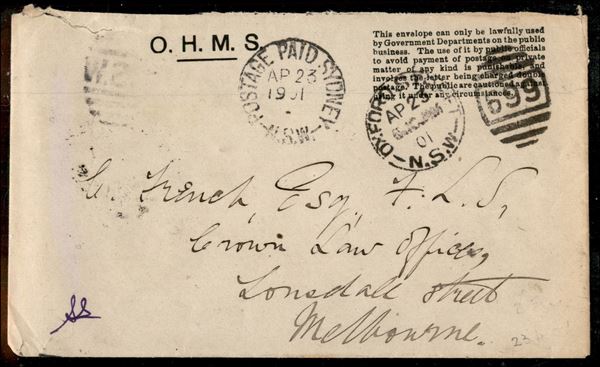 This envelope can only be lawfully used
by Government Departments on the public
business. The use of it by public officials
to avoid payment of postage on private
matter of any kind is punishable, and
involves the letter being charged double
postage. The public are cautioned against
using it under any circumstances.
O. H. M. S.
POSTAGE PAID SYDNEY
AP 23
1901
N.S.W
OXFORD STREET
AP 23
01
N.S.W
699
C. French, Esq, F.L.S,
Crown Law Offices,
Lonsdale street
Melbourne.
23